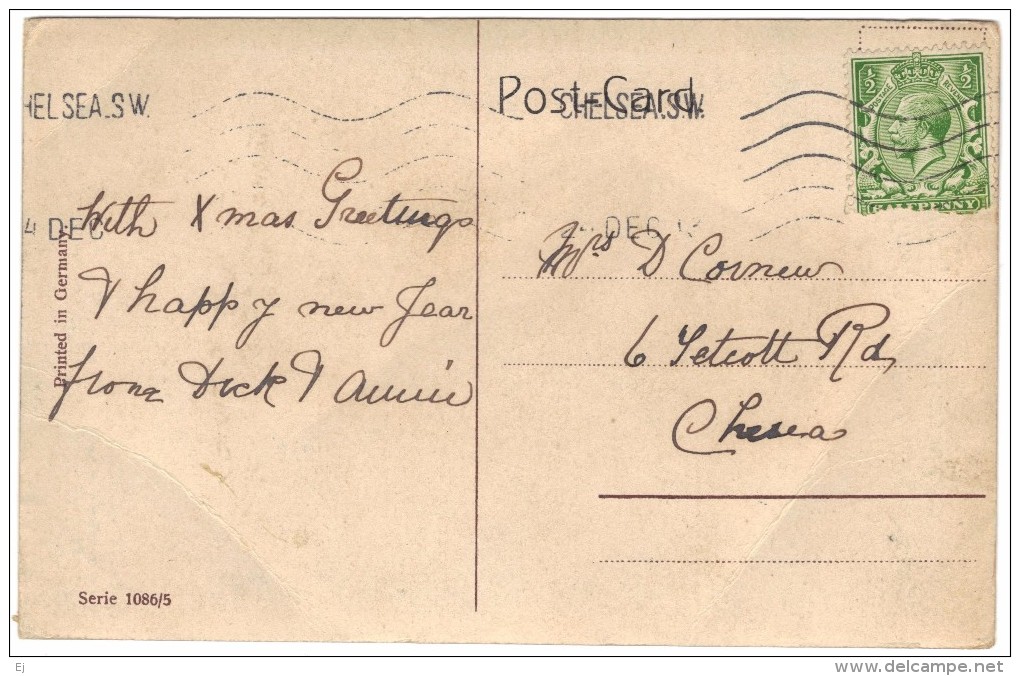 Post-Card.
CHELSEA.S.W.
HELSEA.S.W.
4 DEC
DEC
½ ½
POSTAGE REVENUE
HALFPENNY
With Xmas Greetings
& happy new Year
from Dick & Annie
Mrs D Cornew
6 Tetcott Rd,
Chesea
Printed in Germany.
Serie 1086/5
Ej
www.delcampe.net